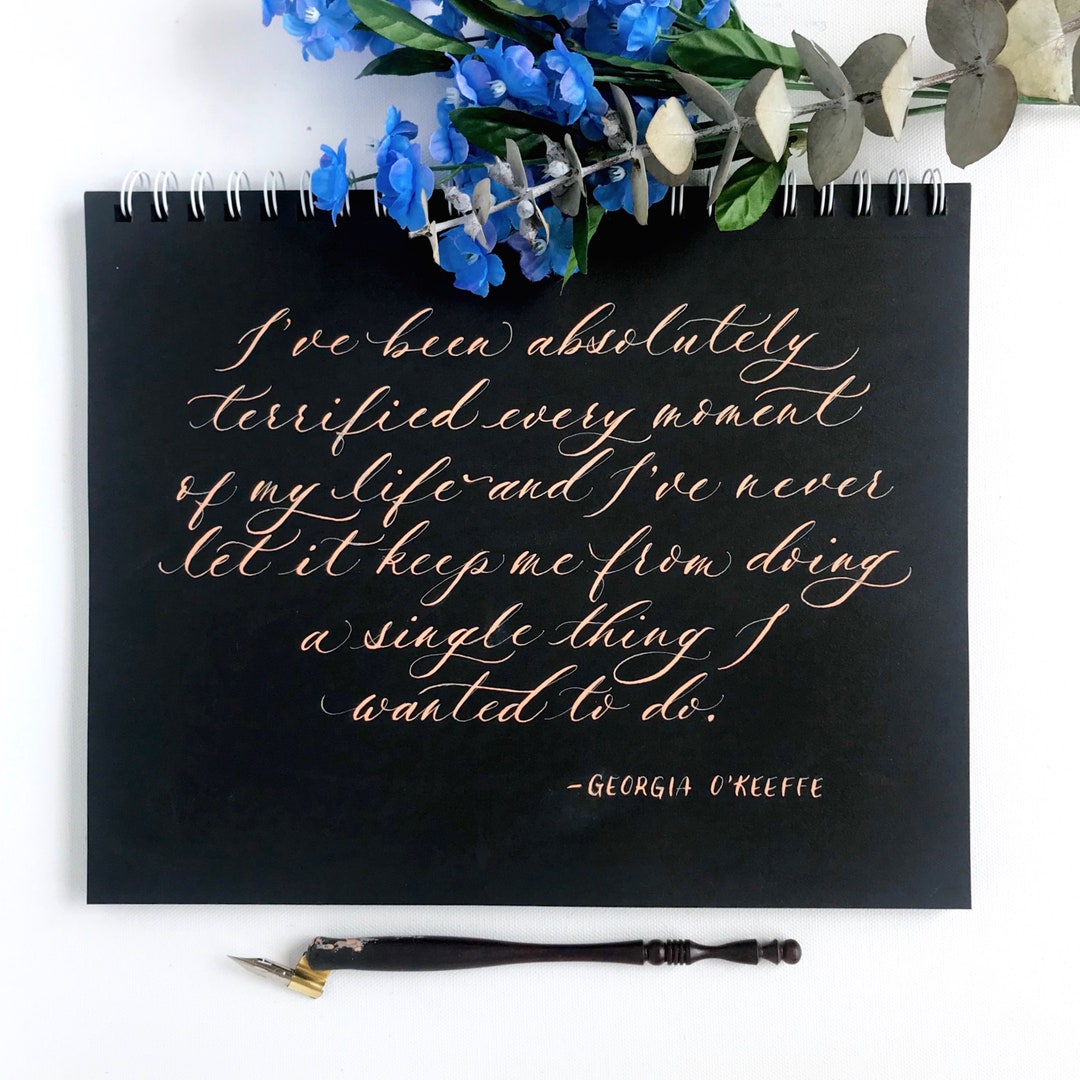 I've been absolutely
terrified every moment
of my life and I've never
let it keep me from doing
a single thing I
wanted to do.
-GEORGIA O'KEEFFE